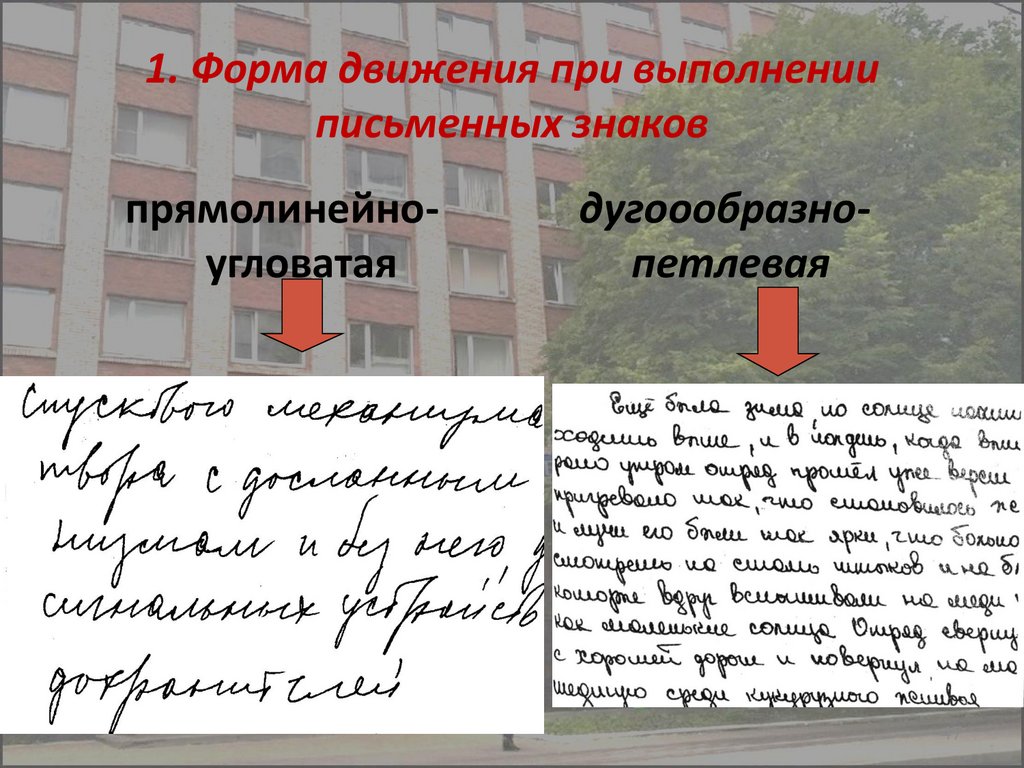 1. Форма движения при выполнении
письменных знаков
прямолинейно-
угловатая
дугоообразно-
петлевая
спускового механизма
твора с досланным
низмом и без него д
сигнальных устройств
дохранителей
Ещё была зима но солнце
ходило выше, и в полдень, когда выше
рано утром отряд прошёл уже верст
пригревало так, что становилось же
и лучи его были так ярки, что больно
смотреть на сталь штыков и на б
которые вдруг вспыхивали на меди
как маленькие солнца Отряд сверну
с хорошей дороги и повернул на ма
шедшую среди кукурузного жнивья